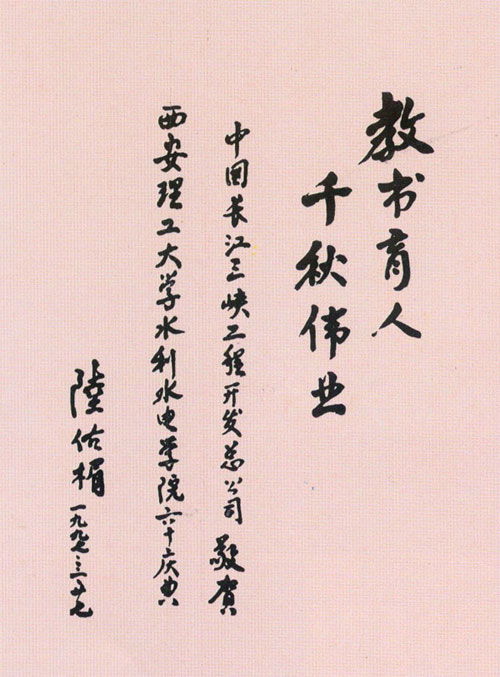 教书育人
千秋伟业
中国长江三峡工程开发总公司 敬贺
西安理工大学水利水电学院六十庆典
陸佑楣 一九九七·三·廿七